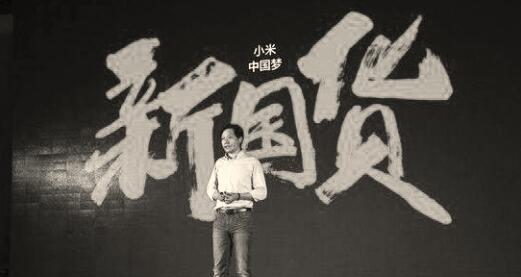 小米
中国梦
新国货